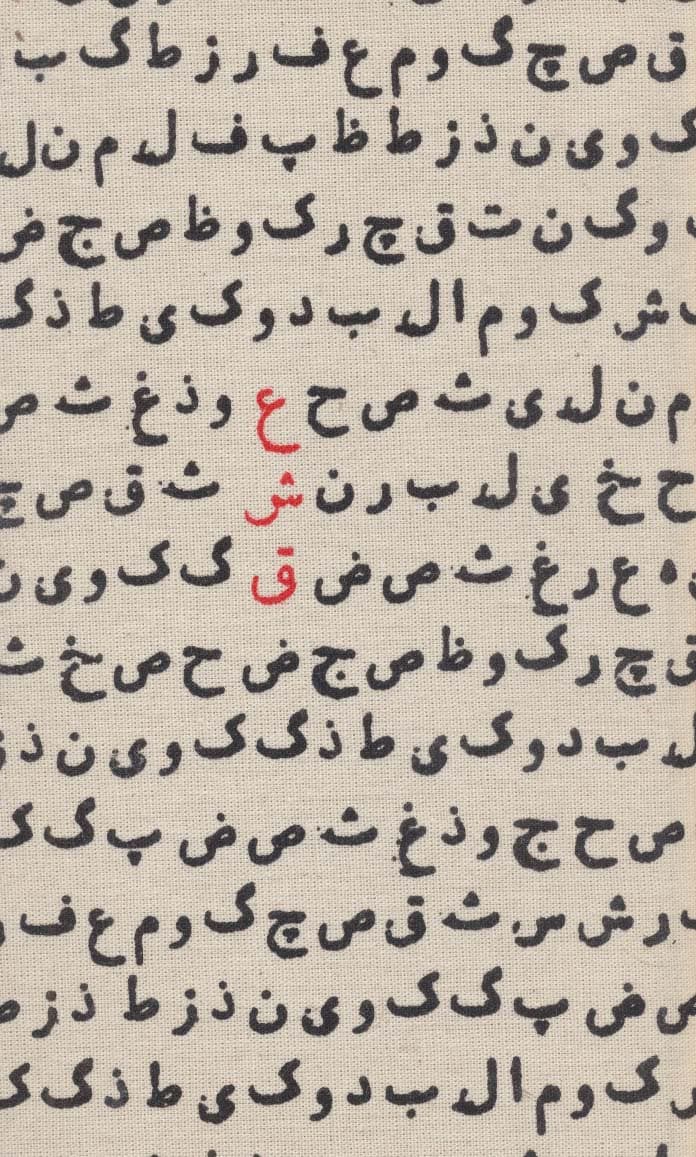 ق ص چ گ و م ع ف ر ز ط گ ب
ک و ی ن ذ ز ط ظ پ ف ل د م ن ل
و گ ن ت ق چ ر ک و ظ ص چ ض
ش ک و م ا ل د ب د و ک ی ط ذ گ
م ن ل د ی ث ص ح ع و ذ غ ث ص
ح خ ی ل د ب ر ن ش ث ق ص چ
ه ع ر غ ث ص ض ق گ ک و ی ن
ق چ ر ک و ظ ص ج ض ح ص خ ث
ل د ب د و ک ی ط ذ گ ک و ی ن ذ ز
ص ح ج و ذ غ ث ص ض پ گ ک
ر ش س ث ق ص چ گ و م ع ف ر
ص ض پ گ ک و ی ن ذ ز ط ذ ز ط
ک و م ا ل د ب د و ک ی ط ذ گ ک